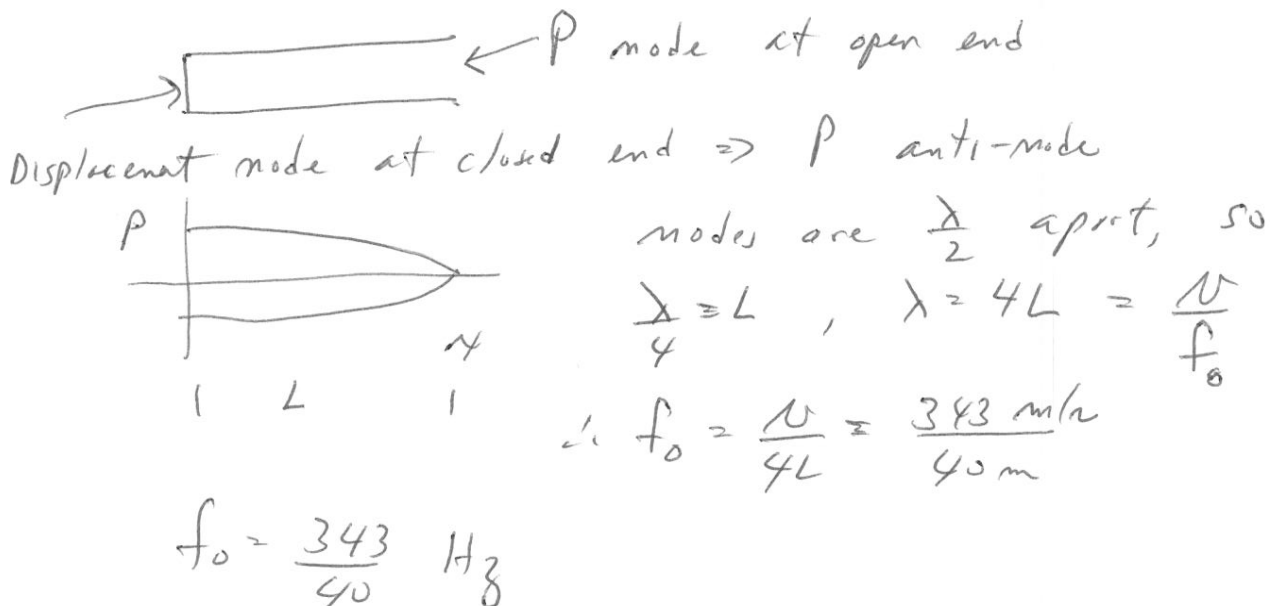 P node at open end
Displacenat node at closed end => P anti-node
P
nodes are λ/2 aprt, so
λ/4 = L , λ = 4L = v/f₀
N
| L |
∴ f₀ = v/4L = 343 m/s / 40 m
f₀ = 343/40 Hz